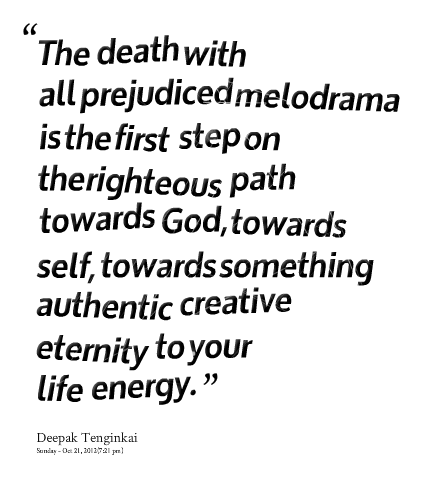 “The death with
all prejudiced melodrama
is the first step on
the righteous path
towards God, towards
self, towards something
authentic creative
eternity to your
life energy.”
Deepak Tenginkai
Sunday - Oct 21, 2012(7:21 pm)